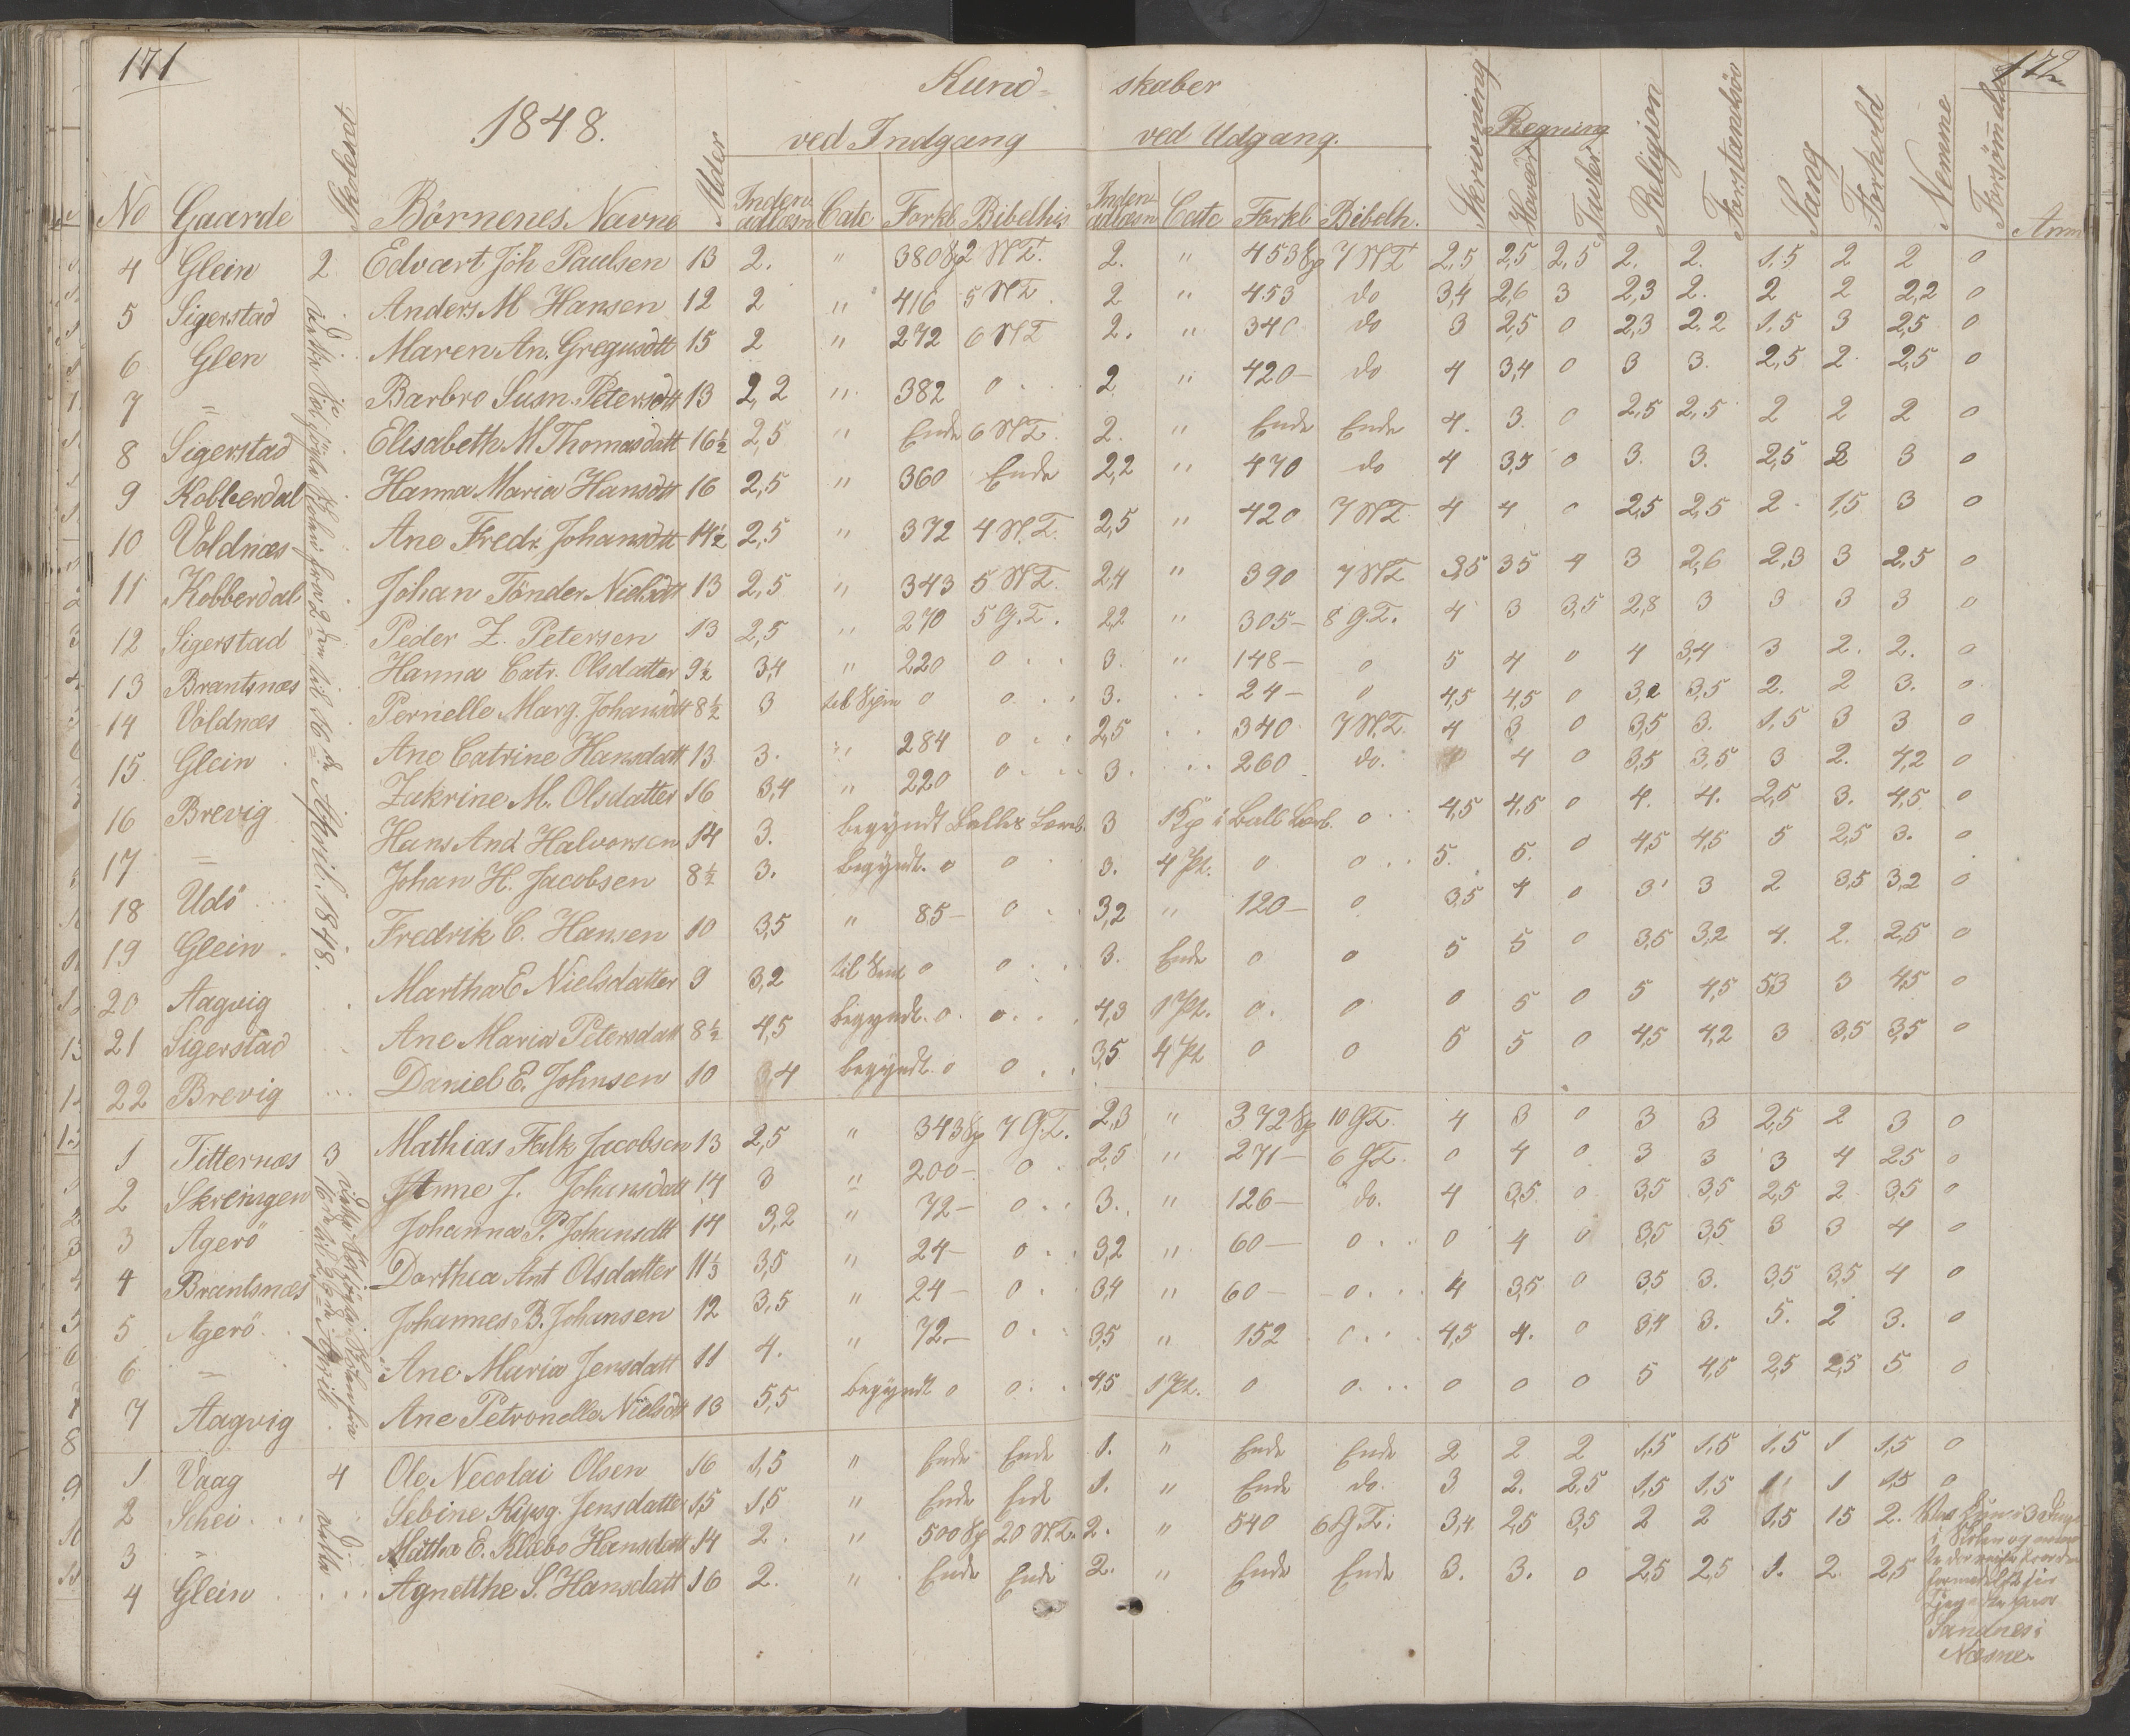 171
172
Kund- skaber
1848.
ved Indgang ved Udgang. Regning
No Gaarde Børnenes Navne Alder Inden adlæsn Catc Forkl. Bibelhis Inden adlæsn Catc Forkl. Bibelh. Skrivning Hoved Tavler Religion Sang Forhold Nemme Anm
4 Glein 2 Edvart Joh Paulsen 13 2. " 380 Sp 2 N.T. 2. " 453 Sp 7 N.T. 2,5 2,5 2,5 2. 2. 1,5 2 2 0
5 Sigerstad Anders M Hansen 12 2 " 416 5 N.T. 2 " 453 do 3,4 2,6 3 2,3 2. 2 2 2,2 0
6 Glen Maren An. Gregusdtt 15 2 " 272 6 N.T. 2. " 340 do 3 2,5 0 2,3 2,2 1,5 3 2,5 0
7 " Barbro Susn. Petersdtt 13 2,2 " 382 0 2 " 420 - do 4 3,4 0 3 3. 2,5 2 2,5 0
8 Sigerstad Elisabeth M Thomasdatt 16½ 2,5 " Ende 6 N.T. 2. " Ende Ende 4. 3. 0 2,5 2,5 2 2 2 0
9 Kobberdal Hanna Maria Hansdtt 16 2,5 " 360 Ende 2,2 " 470 do 4 3,5 0 3. 3. 2,5 2 3 0
10 Voldnæs Ane Fredr. Johansdtt 14½ 2,5 " 372 4 N.T. 2,5 " 420 7 N.T. 4 4 0 2,5 2,5 2 1,5 3 0
11 Kobberdal Johan Tønder Nielsdtt 13 2,5 " 343 5 N.T. 2,4 " 390 7 N.T. 3,5 3,5 4 3 2,6 2,3 3 2,5 0
12 Sigerstad Peder Z. Petersen 13 2,5 " 270 5 G.T. 2,2 " 305 - 8 G.T. 4 3 3,5 2,8 3 3 3 3 0
13 Brantsnæs Hanna Catr. Olsdatter 9½ 3,4 " 220 0 3. " 148 - 0 5 4 0 4 3,4 3 2. 2. 0
14 Voldnæs Pernelle Marg. Johansdtt 8½ 3 0 0 3. 24 - 0 4,5 4,5 0 3,2 3,5 2. 2 3. 0
15 Glein Ane Catrine Hansdatt 13 3. " 284 0 2,5 340 7 N.T. 4 3 0 3,5 3. 1,5 3 3 0
16 Brevig Zakrine M. Olsdatter 16 3,4 " 220 0 3. 260 do. 4 0 3,5 3,5 3 2. 4,2 0
17 " Hans And. Halvorsen 14 3. begyndt Balles Læreb. 3 i Ball. Lærb. 0 4,5 4,5 0 4. 4. 2,5 3. 4,5 0
18 Udö Johan H. Jacobsen 8½ 3. begyndt. 0 0 3. 4 Pt. 0 0 5. 5. 0 4,5 4,5 5 2,5 3. 0
19 Glein Fredrik C. Hansen 10 3,5 " 85 - 0 3,2 " 120 - 0 3,5 4 0 3 3 2 3,5 3,2 0
20 Aagvig Martha E Nielsdatter 9 3,2 0 0 3. Ende 0 0 5 5 0 3,5 3,2 4. 2. 2,5 0
21 Sigerstad Ane Maria Petersdatt 8½ 4,5 begyndt. 0 0 4,3 1 Pt. 0. 0 0 5 0 5 4,5 5,3 3 4,5 0
22 Brevig Daniel E. Johnsen 10 3,4 begyndt. 0 0 3,5 4 Pt 0 0 5 5 0 4,5 4,2 3 3,5 3,5 0
fra 2den til 16de April 1848.
1 Titternæs 3 Mathias Falk Jacobsen 13 2,5 " 343 Sp 7 G.T. 2,3 " 372 Sp 10 G.T. 4 3 0 3 3 2,5 2 3 0
2 Skreingen Anne J. Johansdatt 14 3 " 200 - 0 2,5 " 271 - 6 G.T. 0 4 0 3 3 3 4 2,5 0
3 Agerö Johanna P. Johansdtt 14 3,2 " 72 - 0 3. " 126 - do. 4 3,5 0 3,5 3,5 2,5 2 3,5 0
4 Brantsnæs Dorthea Ant Olsdatter 11⅓ 3,5 " 24 - 0 3,2 " 60 - 0 0 4 0 3,5 3,5 3 3 4 0
5 Agerö Johannes B. Johansen 12 3,5 " 24 - 0 3,4 " 60 - 0 4 3,5 0 3,5 3. 3,5 3,5 4 0
6 " Ane Maria Jensdatt 11 4. " 72 - 0 3,5 " 152 0 4,5 4. 0 3,4 3. 5. 2 3. 0
7 Aagvig Ane Petronelle Nielsdtt 13 5,5 begyndt 0 0 4,5 1 Pt. 0 0 0 0 0 5 4,5 2,5 2,5 5 0
1 Vaag 4 Ole Necolai Olsen 16 1,5 " Ende Ende 1. " Ende Ende 2 2 2 1,5 1,5 1,5 1 1,5 0
2 Schei Sebine Jensdatter 15 1,5 " Ende Ende 1. " Ende do. 3 2. 2,5 1,5 1,5 1 1 1,5 0
3 " Martha E. Klæbo Hansdatt 14 2. " 500 Sp 20 N.T. 2. " 540 6 G.T. 3,4 2,5 3,5 2 2 1,5 1,5 2.
4 Glein Agnetthe S. Hansdatt 16 2. " Ende Ende 2. " Ende Ende 3. 3. 0 2,5 2,5 1. 2. 2,5
Sandnes i
Næsne